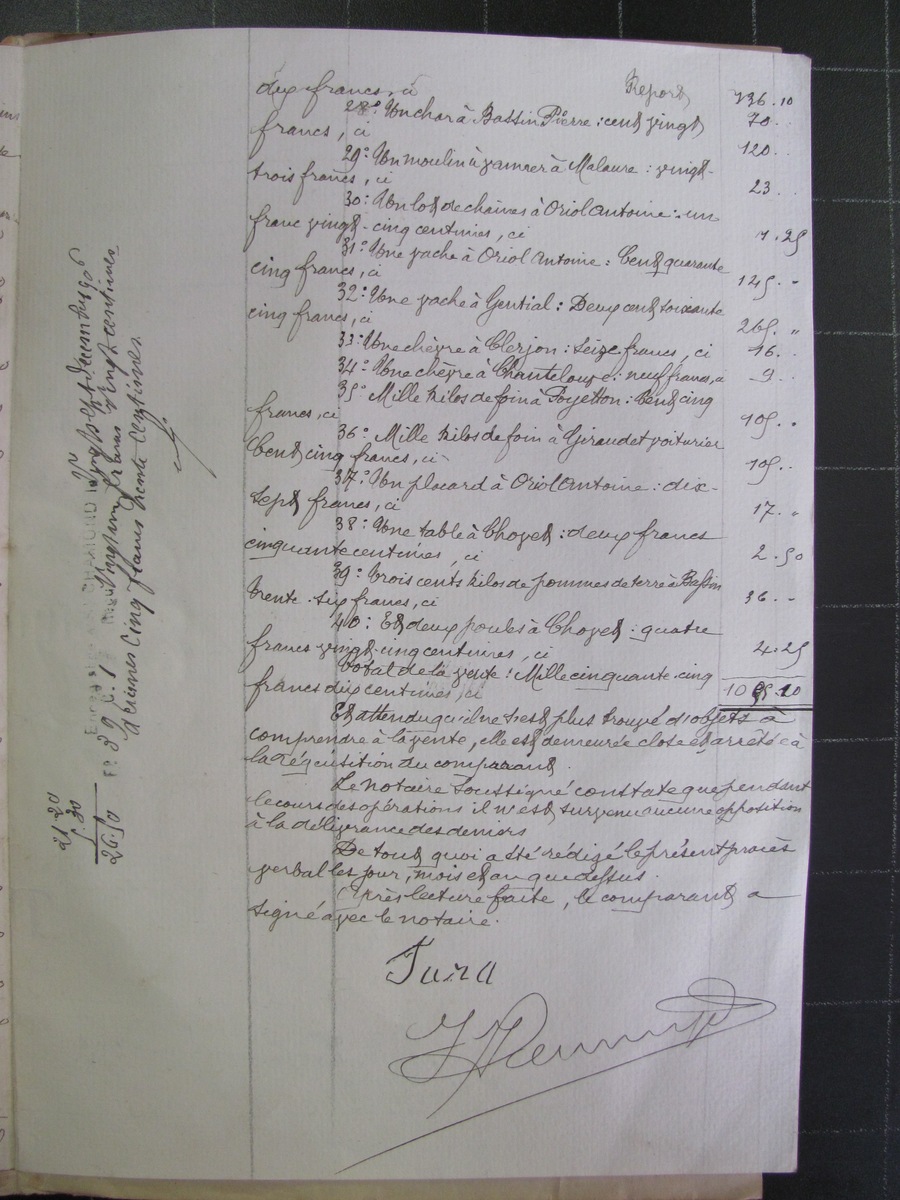 dix francs, ci Report 136.10
70.
28° Un char à Bassin Pierre : cent vingt
francs, ci 120.
29° Un moulin à vanner à Malaure : vingt-
trois francs, ci 23
30° Un lot de chaînes à Oriol Antoine : un
franc vingt-cinq centimes, ci 1.25
31° Une vache à Oriol Antoine : Cent quarante
cinq francs, ci 145. "
32° Une vache à Gential : Deux cent soixante
cinq francs, ci 265. "
33° Une chèvre à Clerjon : Seize francs, ci 16.
34° Une chèvre à Chanteloupe : neuf francs, ci 9.
35° Mille kilos de foin à Poyetton : Cent cinq
francs, ci 105. "
36° Mille kilos de foin à Giraudet voiturier
Cent cinq francs, ci 105.
37° Un placard à Oriol Antoine : dix-
sept francs, ci 17. "
38° Une table à Choyet : deux francs
cinquante centimes, ci 2.50
39° Trois cents kilos de pommes de terre à Bassin
Trente-six francs, ci 36. -
40° Et deux poules à Choyet : quatre
francs vingt-cinq centimes, ci 4.25
Total de la vente : Mille cinquante-cinq
francs dix centimes, ci 1055.10
Et attendu qu'il ne s'est plus trouvé d'objets à
comprendre à la vente, elle est demeurée close et arrêtée à
la réquisition du comparant.
Le notaire soussigné constate que pendant
le cours des opérations il n'est survenu aucune opposition
à la délivrance des deniers
De tout quoi a été rédigé le présent procès
verbal les jour, mois et an que dessus.
Après lecture faite, le comparant a
signé avec le notaire.
CHAMOND le vingt sept décembre 1906
F° 39 C. 1 Reçu vingt un francs vingt centimes
Décimes cinq francs trente centimes
21 20
5 30
26.50